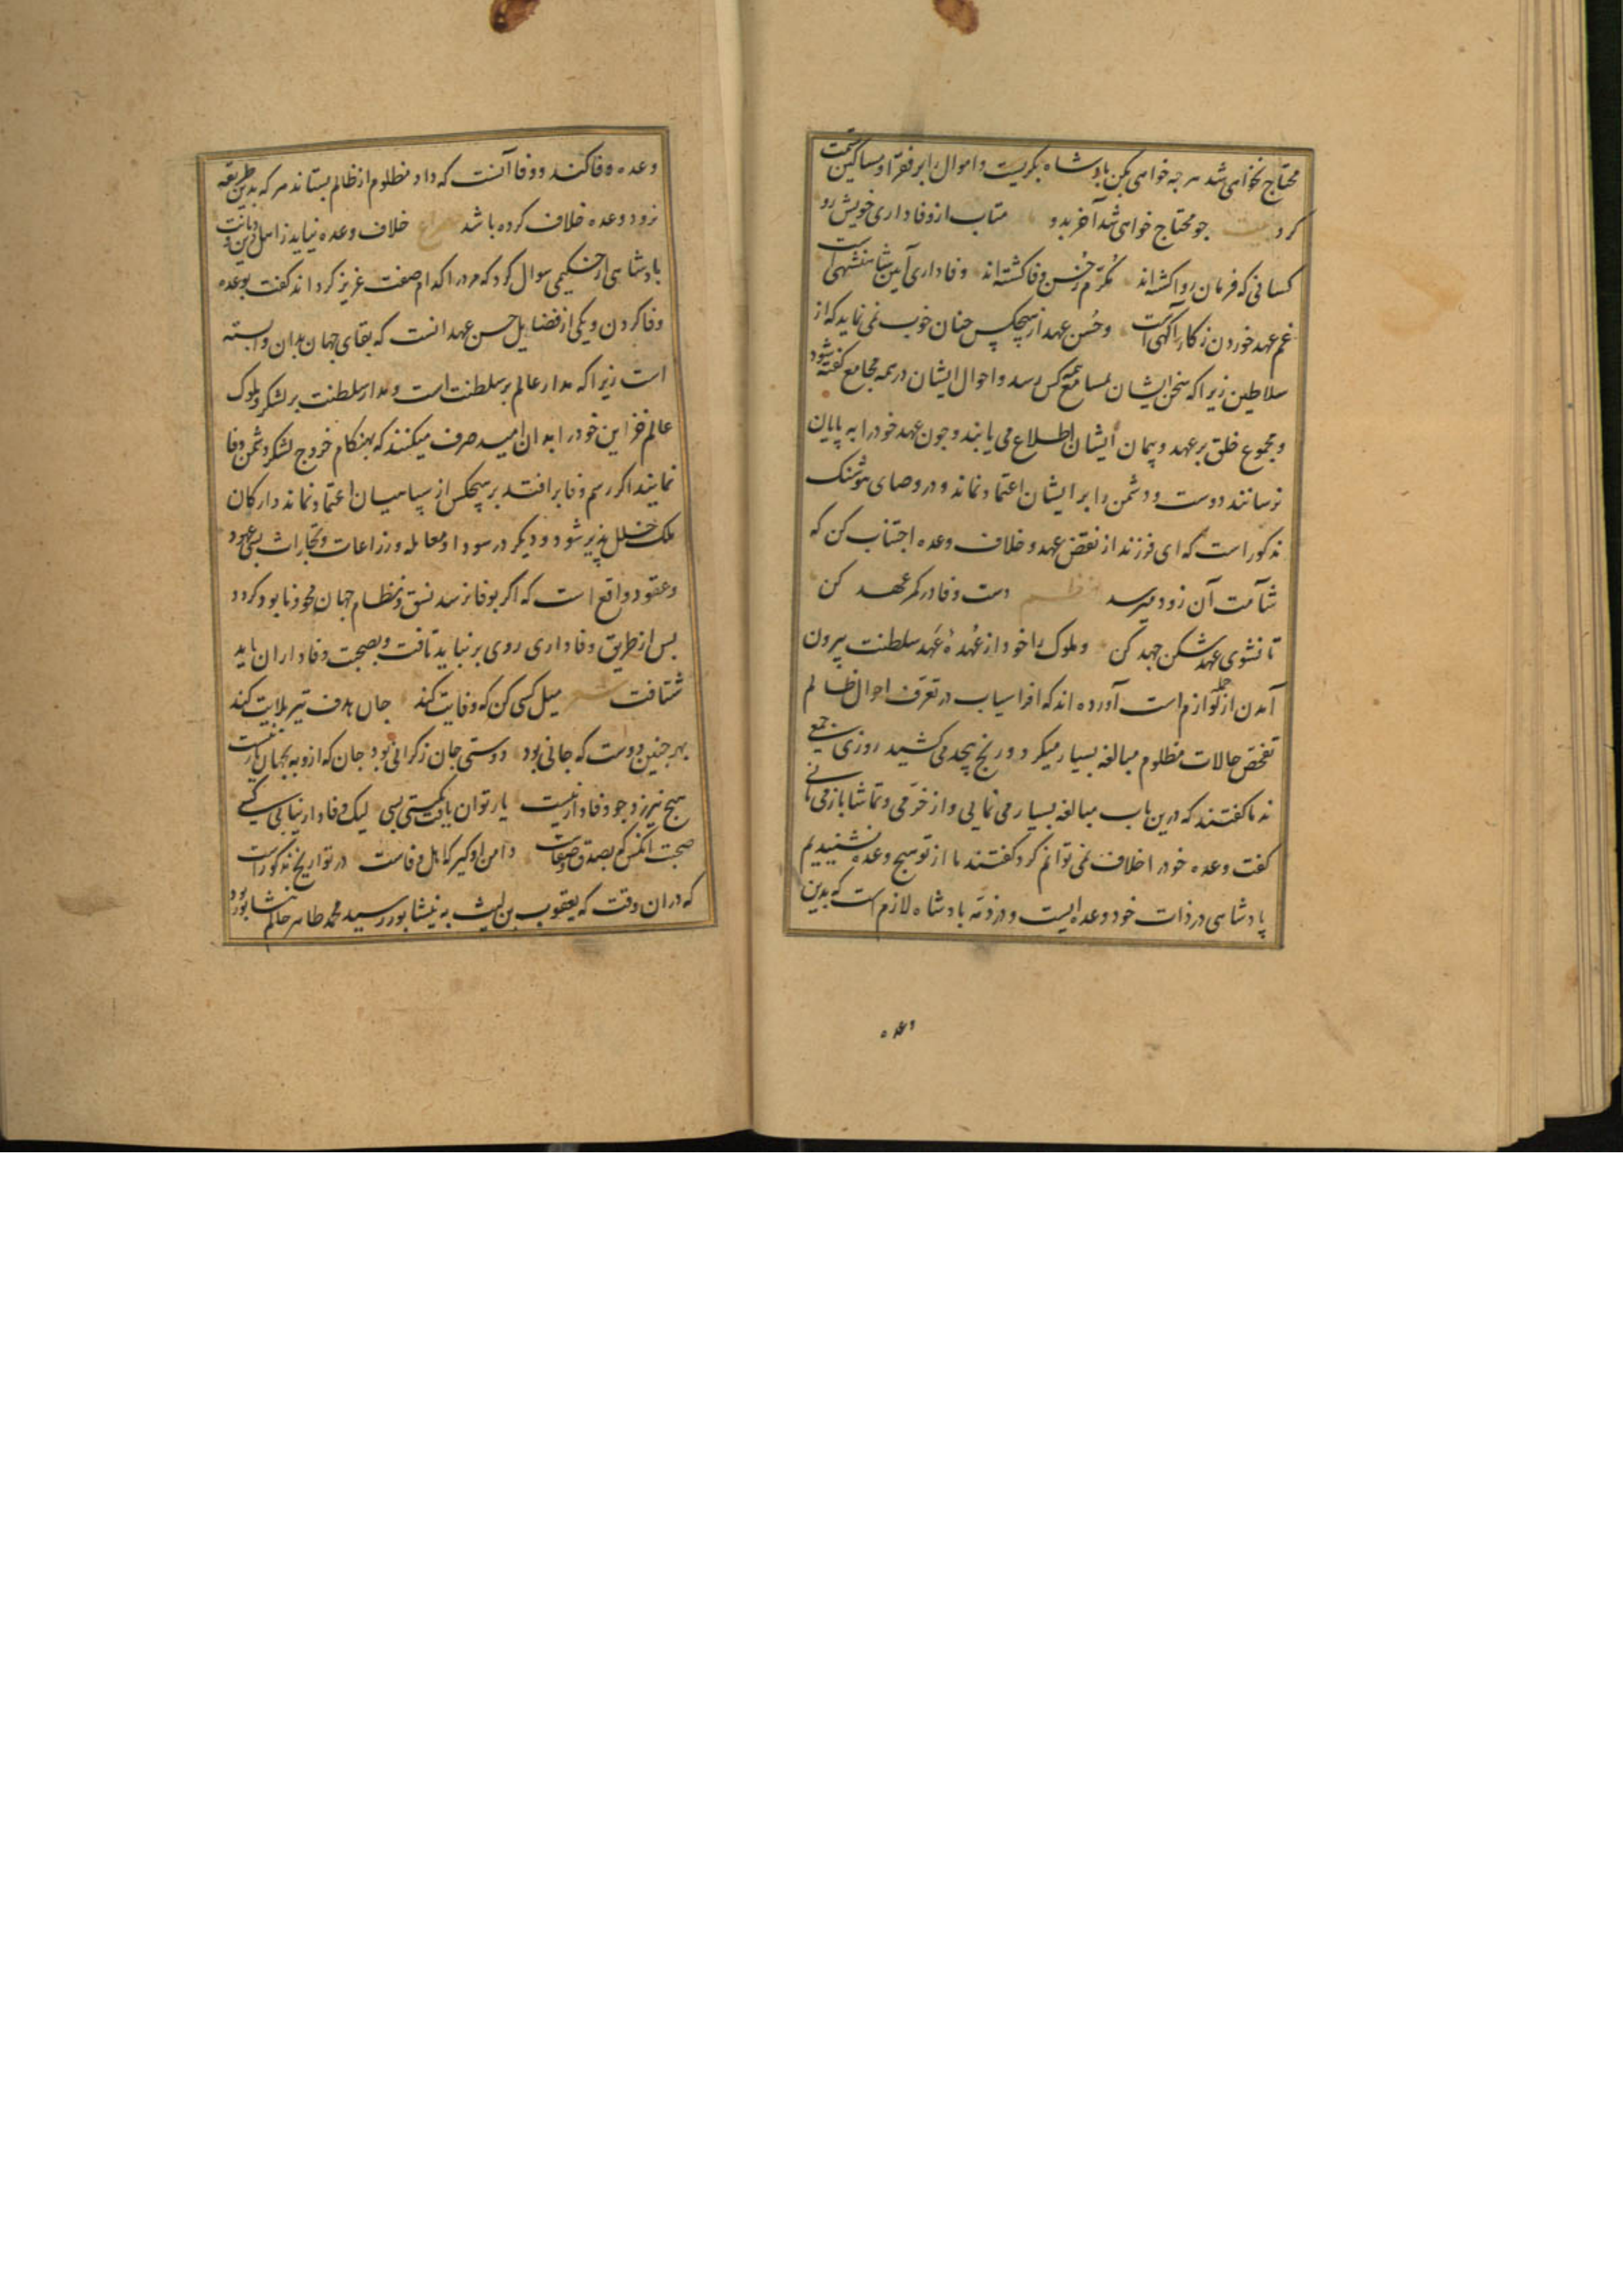 محتاج نخواهی شد هرچه خواهی بکن بادشاه بکریست و اموال را بر فقرا و مساکین قسمت
کرد بیت جو محتاج خواهی شد آخر بدو متاب از وفاداری خویش رو
کسانی که فرمان روا کشته‌اند مکرم ز حسن وفا کشته‌اند وفاداری آیین شاهنشهی است
غم عهد خوردن ز کار آگهی است و حسن عهد از هیچکس چنان خوب نمی نماید که از
سلاطین زیرا که سخن ایشان بمسامع همه کس رسد و احوال ایشان در همه مجامع کفته شود
و مجموع خلق بر عهد و پیمان ایشان اطلاع می یابند و جون عهد خود را به پایان
نرسانند دوست و دشمن را بر ایشان اعتماد نماند و در وصای هوشنک
مذکور است که ای فرزند از نقض عهد و خلاف وعده اجتناب کن که
شآمت آن زود میرسد نظم دست وفا در کمر عهد کن
تا نشوی عهد شکن جهد کن و ملوک را خود از عهده عهد سلطنت بیرون
آمدن از جمله لوازم است آورده‌اند که افراسیاب در تعرف احوال ظالم
تفحص حالات مظلوم مبالغه بسیار میکرد و رنج بیحد می کشید روزی جمعی
ندما کفتند که درین باب مبالغه بسیار می نمایی و از خرمی و تماشا باز می مانی
کفت وعده خود را خلاف نمی توانم کرد کفتند ما از تو هیچ وعده نشنیدیم
پادشاهی در ذات خود وعده ایست و در ذمه بادشاه لازم است که بدین
وعده
وعده وفا کند و وفا آنست که داد مظلوم از ظالم بستاند هر که بدین طریقه
نرود وعده خلاف کرده باشد مصراع خلاف وعده نیاید ز اهل دین و دیانت
بادشاهی از حکیمی سوال کرد که مرد را کدام صفت عزیز کرداند کفت بوعده
وفا کردن و یکی از فضایل حسن عهد انست که بقای جهان بدان وابسته
است زیرا که مدار عالم بر سلطنت است و مدار سلطنت بر لشکر و ملوک
عالم خزاین خود را به ان امید صرف میکنند که بهنکام خروج لشکر دشمن وفا
نمایند اکر رسم وفا برافتد بر هیچکس از سپاهیان اعتماد نماند و ارکان
ملک خلل پذیر شود و دیکر در سودا و معامله و زراعات و تجارات بسی عهود
و عقود واقع است که اکر بوفا نرسد نسق و نظام جهان محو و نابود کردد
بس از طریق وفاداری روی برنباید تافت و بصحبت وفاداران باید
شتافت شعر میل کسی کن که وفایت کند جان هدف تیر بلایت کند
بهر جنین دوست که جانی بود دوستی جان ز کرانی بود جان که ازو به بجهان یار نیست
هیچ نیرزد جو وفادار نیست یار توان یافت بکیتی بسی لیک وفادار نیابی کسی
صحبت انکس که بصدق و صفاست دامن او کیر که اهل وفاست در تواریخ مذکور است
که در ان وقت که یعقوب بن لیث به نیشابور رسید محمد طاهر حاکم نیشابور بود